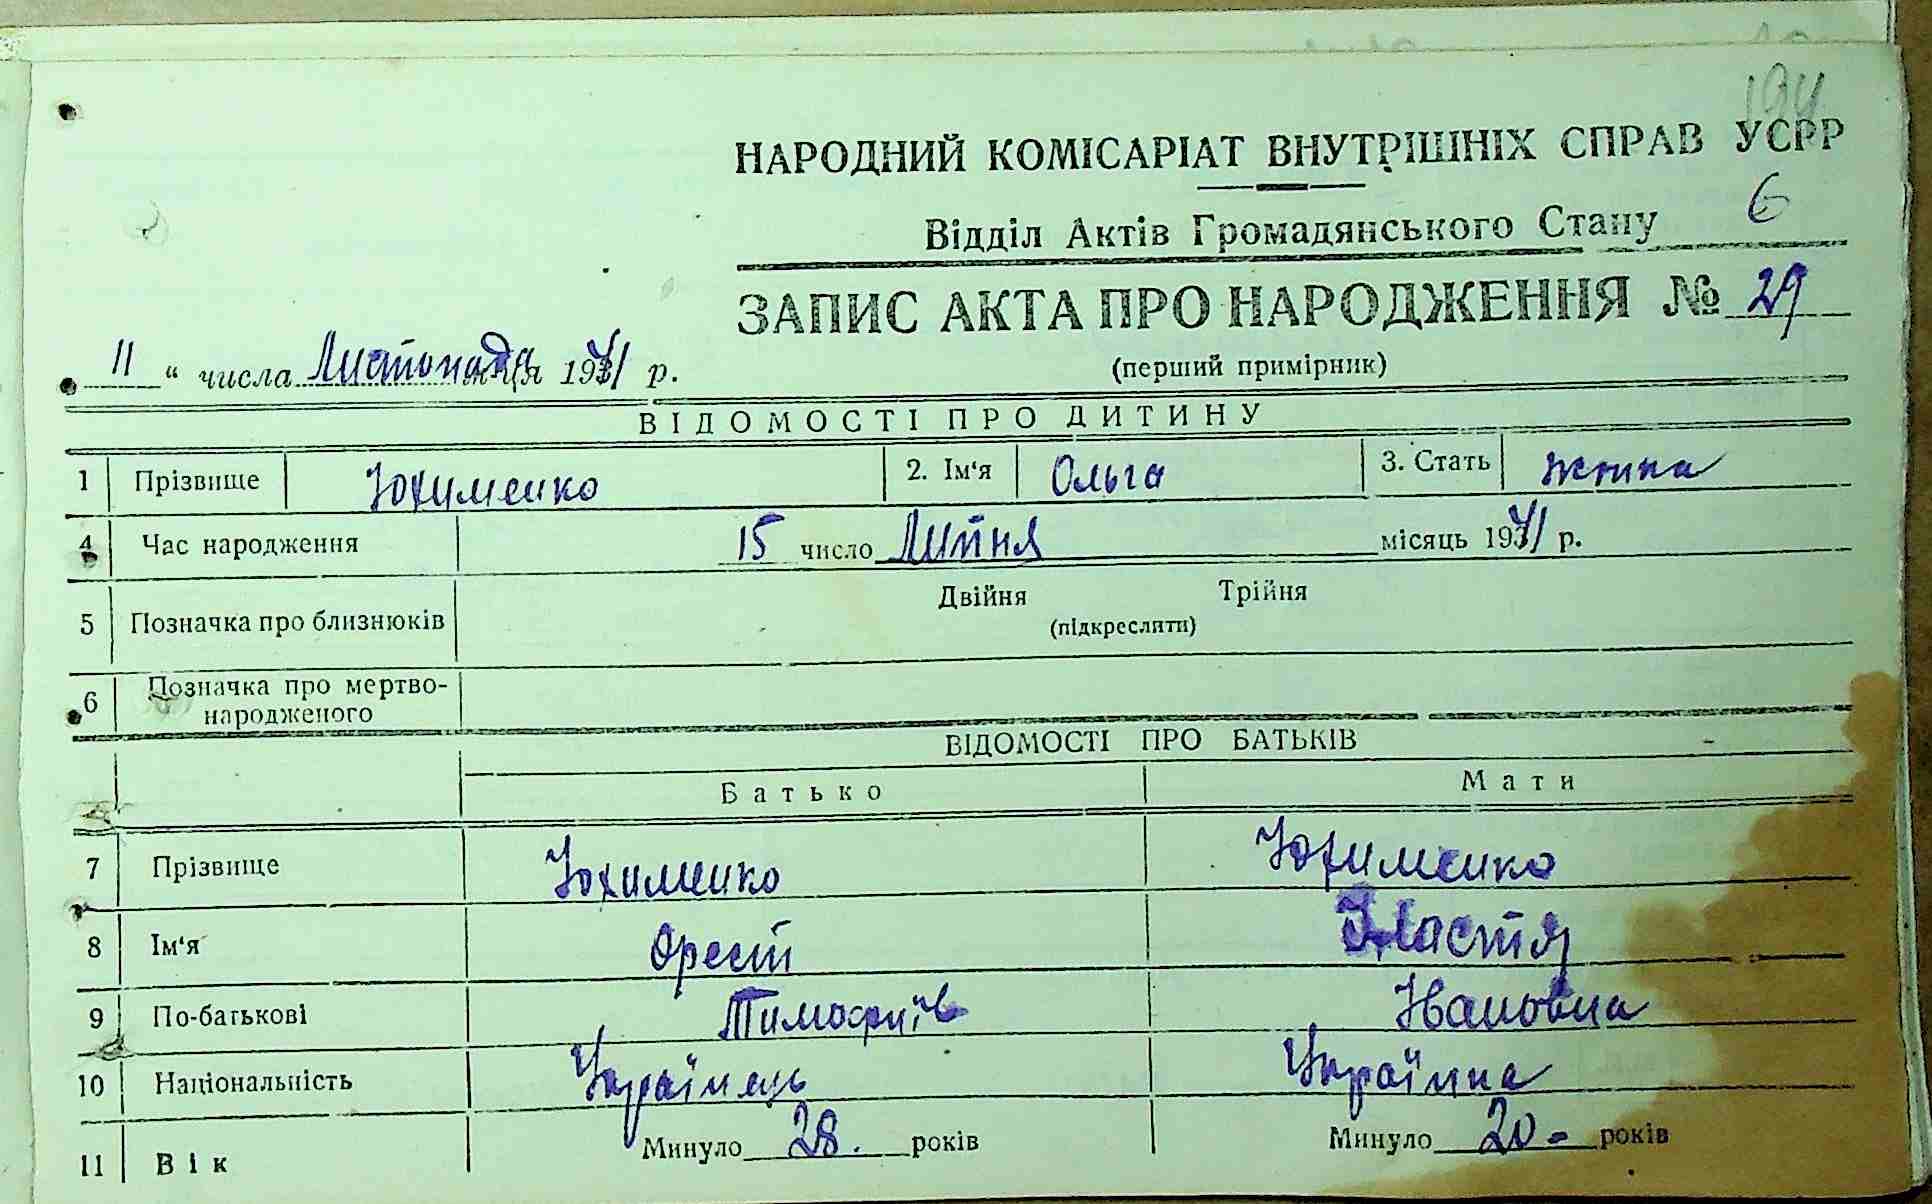 194
НАРОДНИЙ КОМІСАРІАТ ВНУТРІШНІХ СПРАВ УСРР
Відділ Актів Громадянського Стану 6
ЗАПИС АКТА ПРО НАРОДЖЕННЯ № 29
(перший примірник)
11 “ числа Листопада 1941 р.
ВІДОМОСТІ ПРО ДИТИНУ
1 Прізвище Юхименко 2. Ім‘я Ольга 3. Стать жіноча
4 Час народження 15 число Липня місяць 1941 р.
5 Позначка про близнюків Двійня Трійня
(підкреслити)
6 Позначка про мертво-
народженого
ВІДОМОСТІ ПРО БАТЬКІВ
Батько Мати
7 Прізвище Юхименко Юхименко
8 Ім‘я Орест Настя
9 По-батькові Тимофіїв Івановна
10 Національність Українець Українка
11 Вік Минуло 28. років Минуло 20 - років